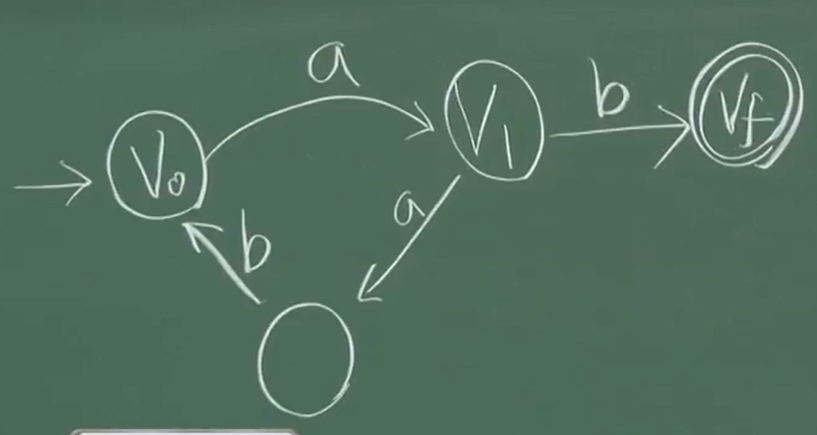 a
V₀
V₁
b
Vf
a
b